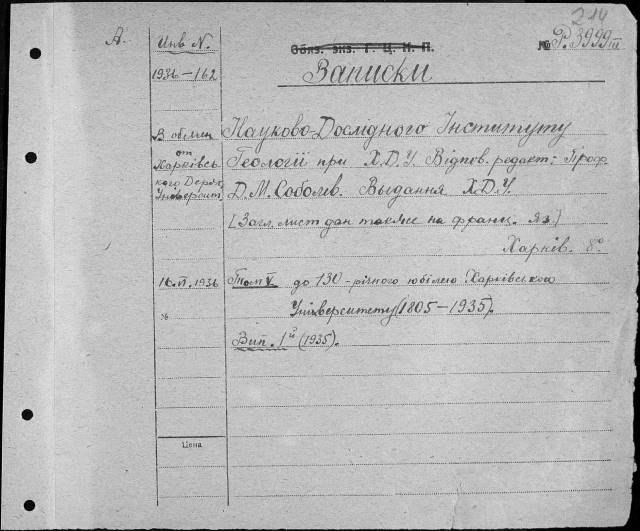 214
А. Инв N. Обяз. экз. Г. Ц. К. П. № Р. 3999 III
1936—162 Записки
В обмен Науково-Дослідного Інституту
от
Харківсь Геології при Х.Д.У. Відпов. редакт.: Проф.
кого Держ. Д. М. Соболєв. Выдання Х.Д.У.
Університ
[Загл. лист дан также на франц. яз.]
Харків. 8°.
16.VI.1936 Том V до 130-річного юбілею Харківського
Університету (1805—1935).
Вип. 1й (1935).
Цена